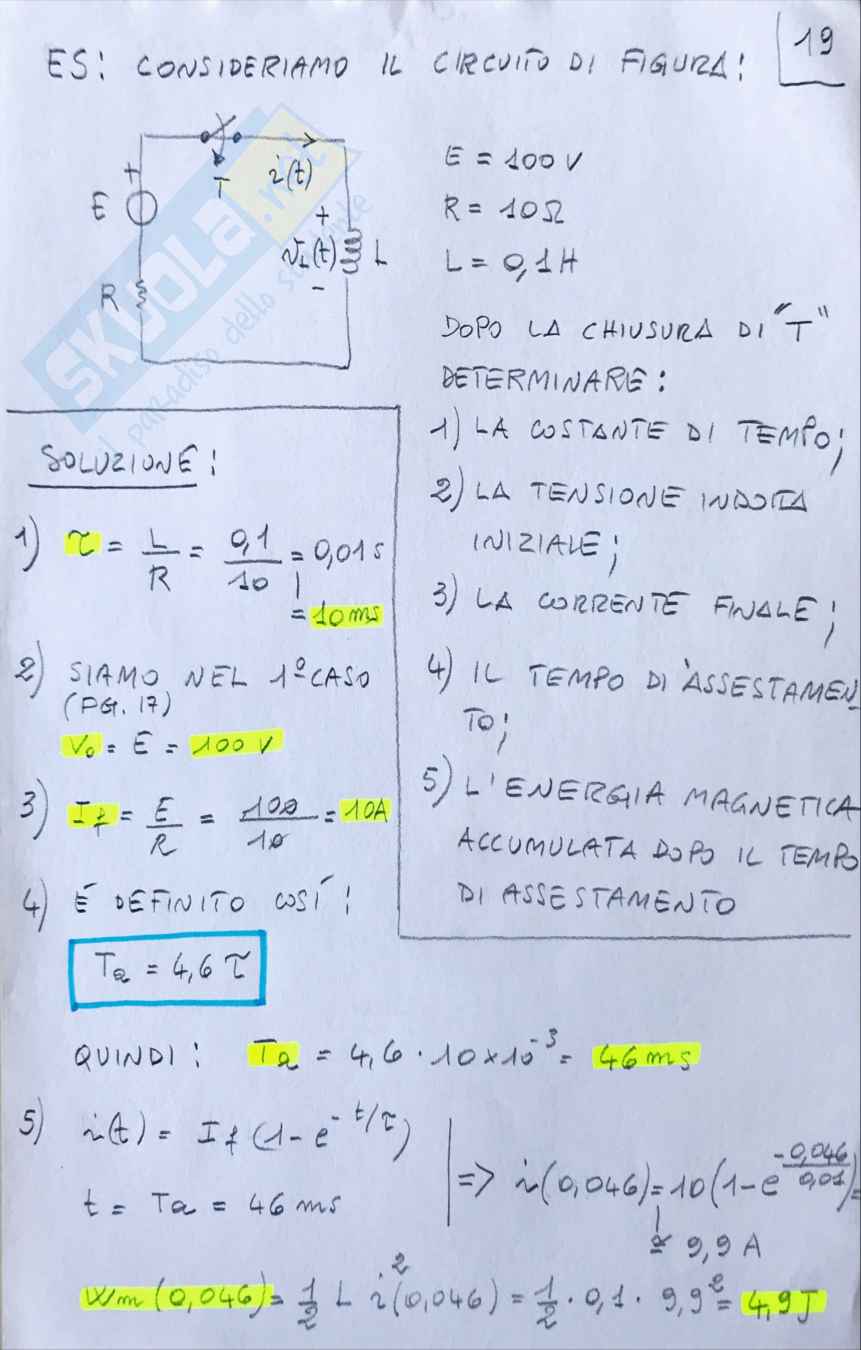 19
ES: CONSIDERIAMO IL CIRCUITO DI FIGURA:
E
+
R
T
i(t)
+
vL(t)
-
L
SKUOLA.net
il paradiso dello studente
E = 100 V
R = 10Ω
L = 0,1 H
DOPO LA CHIUSURA DI "T"
DETERMINARE:
1) LA COSTANTE DI TEMPO;
2) LA TENSIONE INDOTTA
INIZIALE;
3) LA CORRENTE FINALE;
4) IL TEMPO DI ASSESTAMEN-
TO;
5) L'ENERGIA MAGNETICA
ACCUMULATA DOPO IL TEMPO
DI ASSESTAMENTO
SOLUZIONE:
1) τ = L/R = 0,1/10 = 0,01 s
= 10 ms
2) SIAMO NEL 1º CASO
(PG. 17)
V₀ = E = 100 V
3) If = E/R = 100/10 = 10A
4) É DEFINITO COSÍ:
Ta = 4,6 τ
QUINDI: Ta = 4,6 · 10 × 10⁻³ = 46 ms
5) i(t) = If (1 - e^(-t/τ))
t = Ta = 46 ms
=> i(0,046) = 10 (1 - e^(-0,046/0,01)) =
≅ 9,9 A
Wm (0,046) = 1/2 L i²(0,046) = 1/2 · 0,1 · 9,9² = 4,9 J